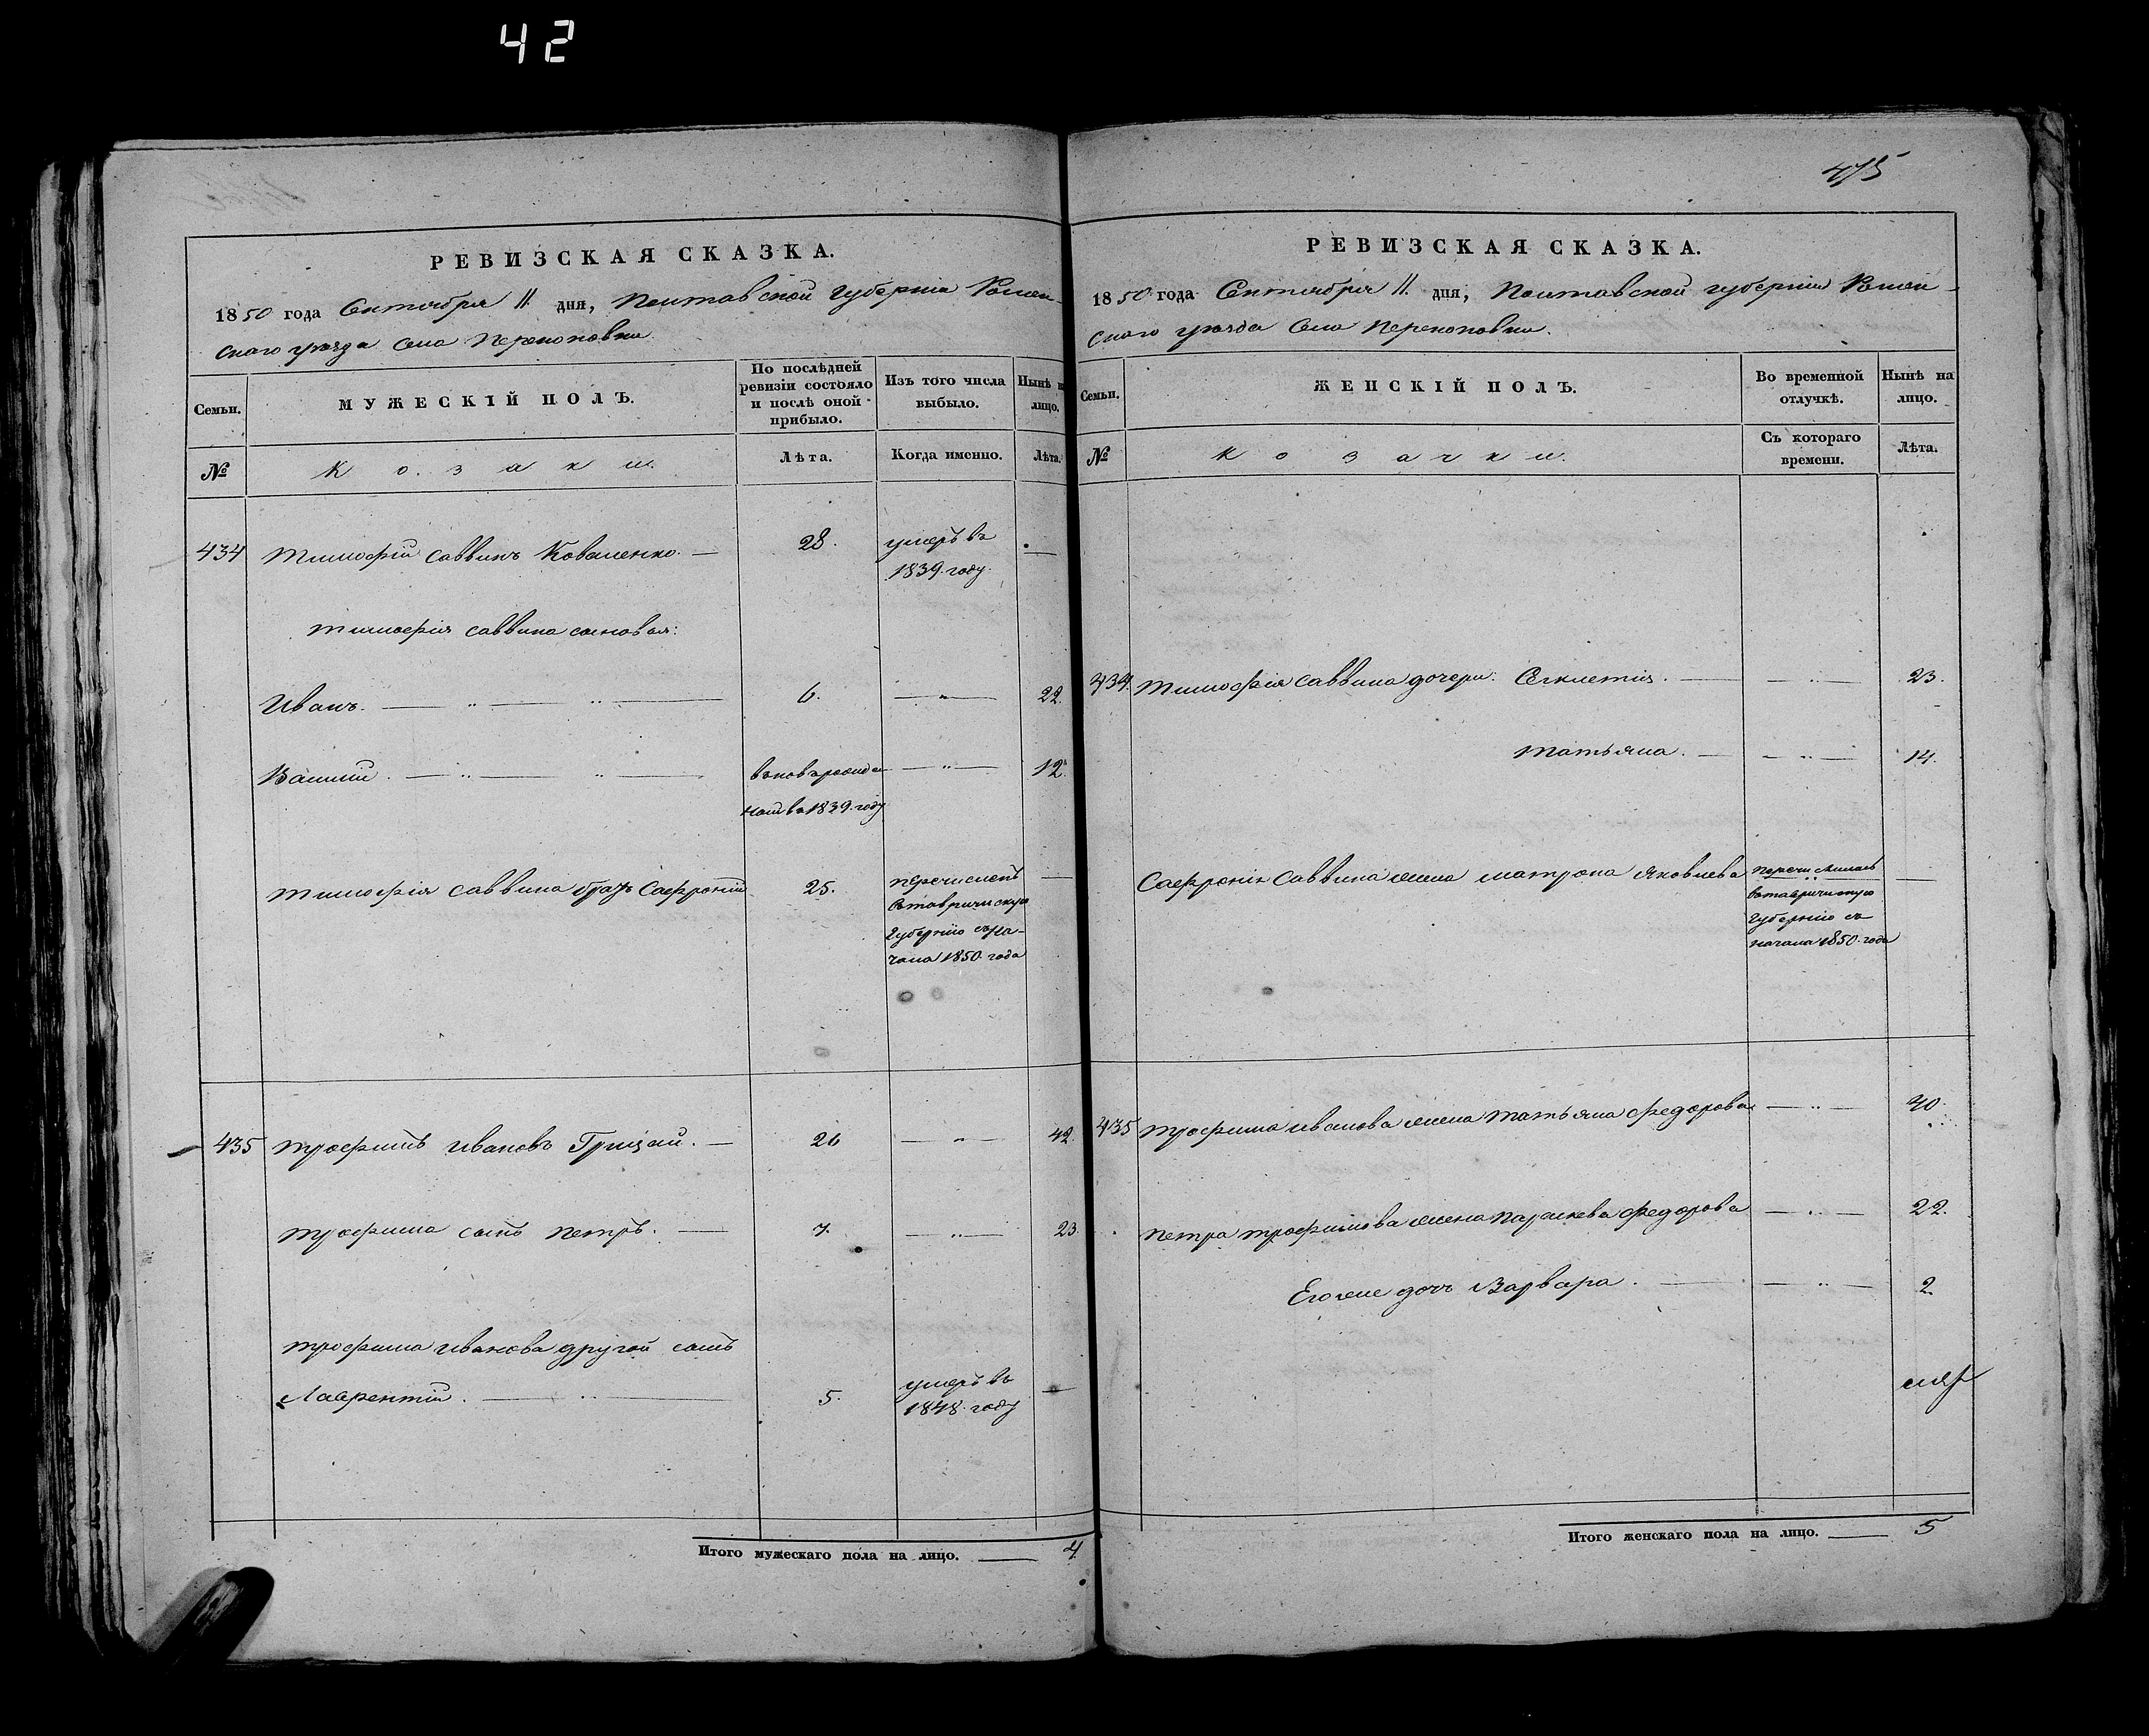 42
415
РЕВИЗСКАЯ СКАЗКА.
1850 года Сентября 11 дня, Полтавской губернии Ромен-
скаго уезда Села Перекоповки
Семьи.
МУЖЕСКІЙ ПОЛЪ.
По послѣдней ревизіи состояло и послѣ оной прибыло.
Изъ того числа выбыло.
Нынѣ н лицо.
№
Козаки.
Лѣта.
Когда именно.
Лѣта.
434 Тимофій Саввинъ Коваленко. — 28. умеръ въ 1839. году. —
Тимофія Саввина сыновья:
Иванъ. — 6. — " — 22.
Василій. — вновьрожден ной въ 1839. году — " — 12.
Тимофія Саввина братъ Сафроній 25. перечисленъ въ таврическую Губернію съ на- чала 1850. года —
435 Трофимъ Ивановъ Грицай. — 26 — " — 42.
Трофима сынъ Петръ. — 7. — " — 23.
Трофима Иванова другой сынъ
Лаврентій. — 5. умеръ въ 1848. году —
Итого мужескаго пола на лицо. — 4
РЕВИЗСКАЯ СКАЗКА.
1850 года Сентября 11. дня, Полтавской губерніи Ромен-
скаго уезда Села Перекоповки.
Семьи.
ЖЕНСКІЙ ПОЛЪ.
Во временной отлучкѣ.
Нынѣ на лицо.
№
Козачки.
Съ котораго времени.
Лѣта.
434. Тимофія Саввина дочери: Секлетія. — " — 23.
Татьяна. — " — 14.
Сафронія Саввина жена Матрона Яковлева перечислилась въ таврическую Губернію съ начала 1850. года —
435 Трофима Иванова жена Татьяна Федорова — " — 40.
Петра Трофимова жена Параскева Федорова — " — 22.
Его же дочь Варвара. — " — 2.
Итого женскаго пола на лицо. — 5